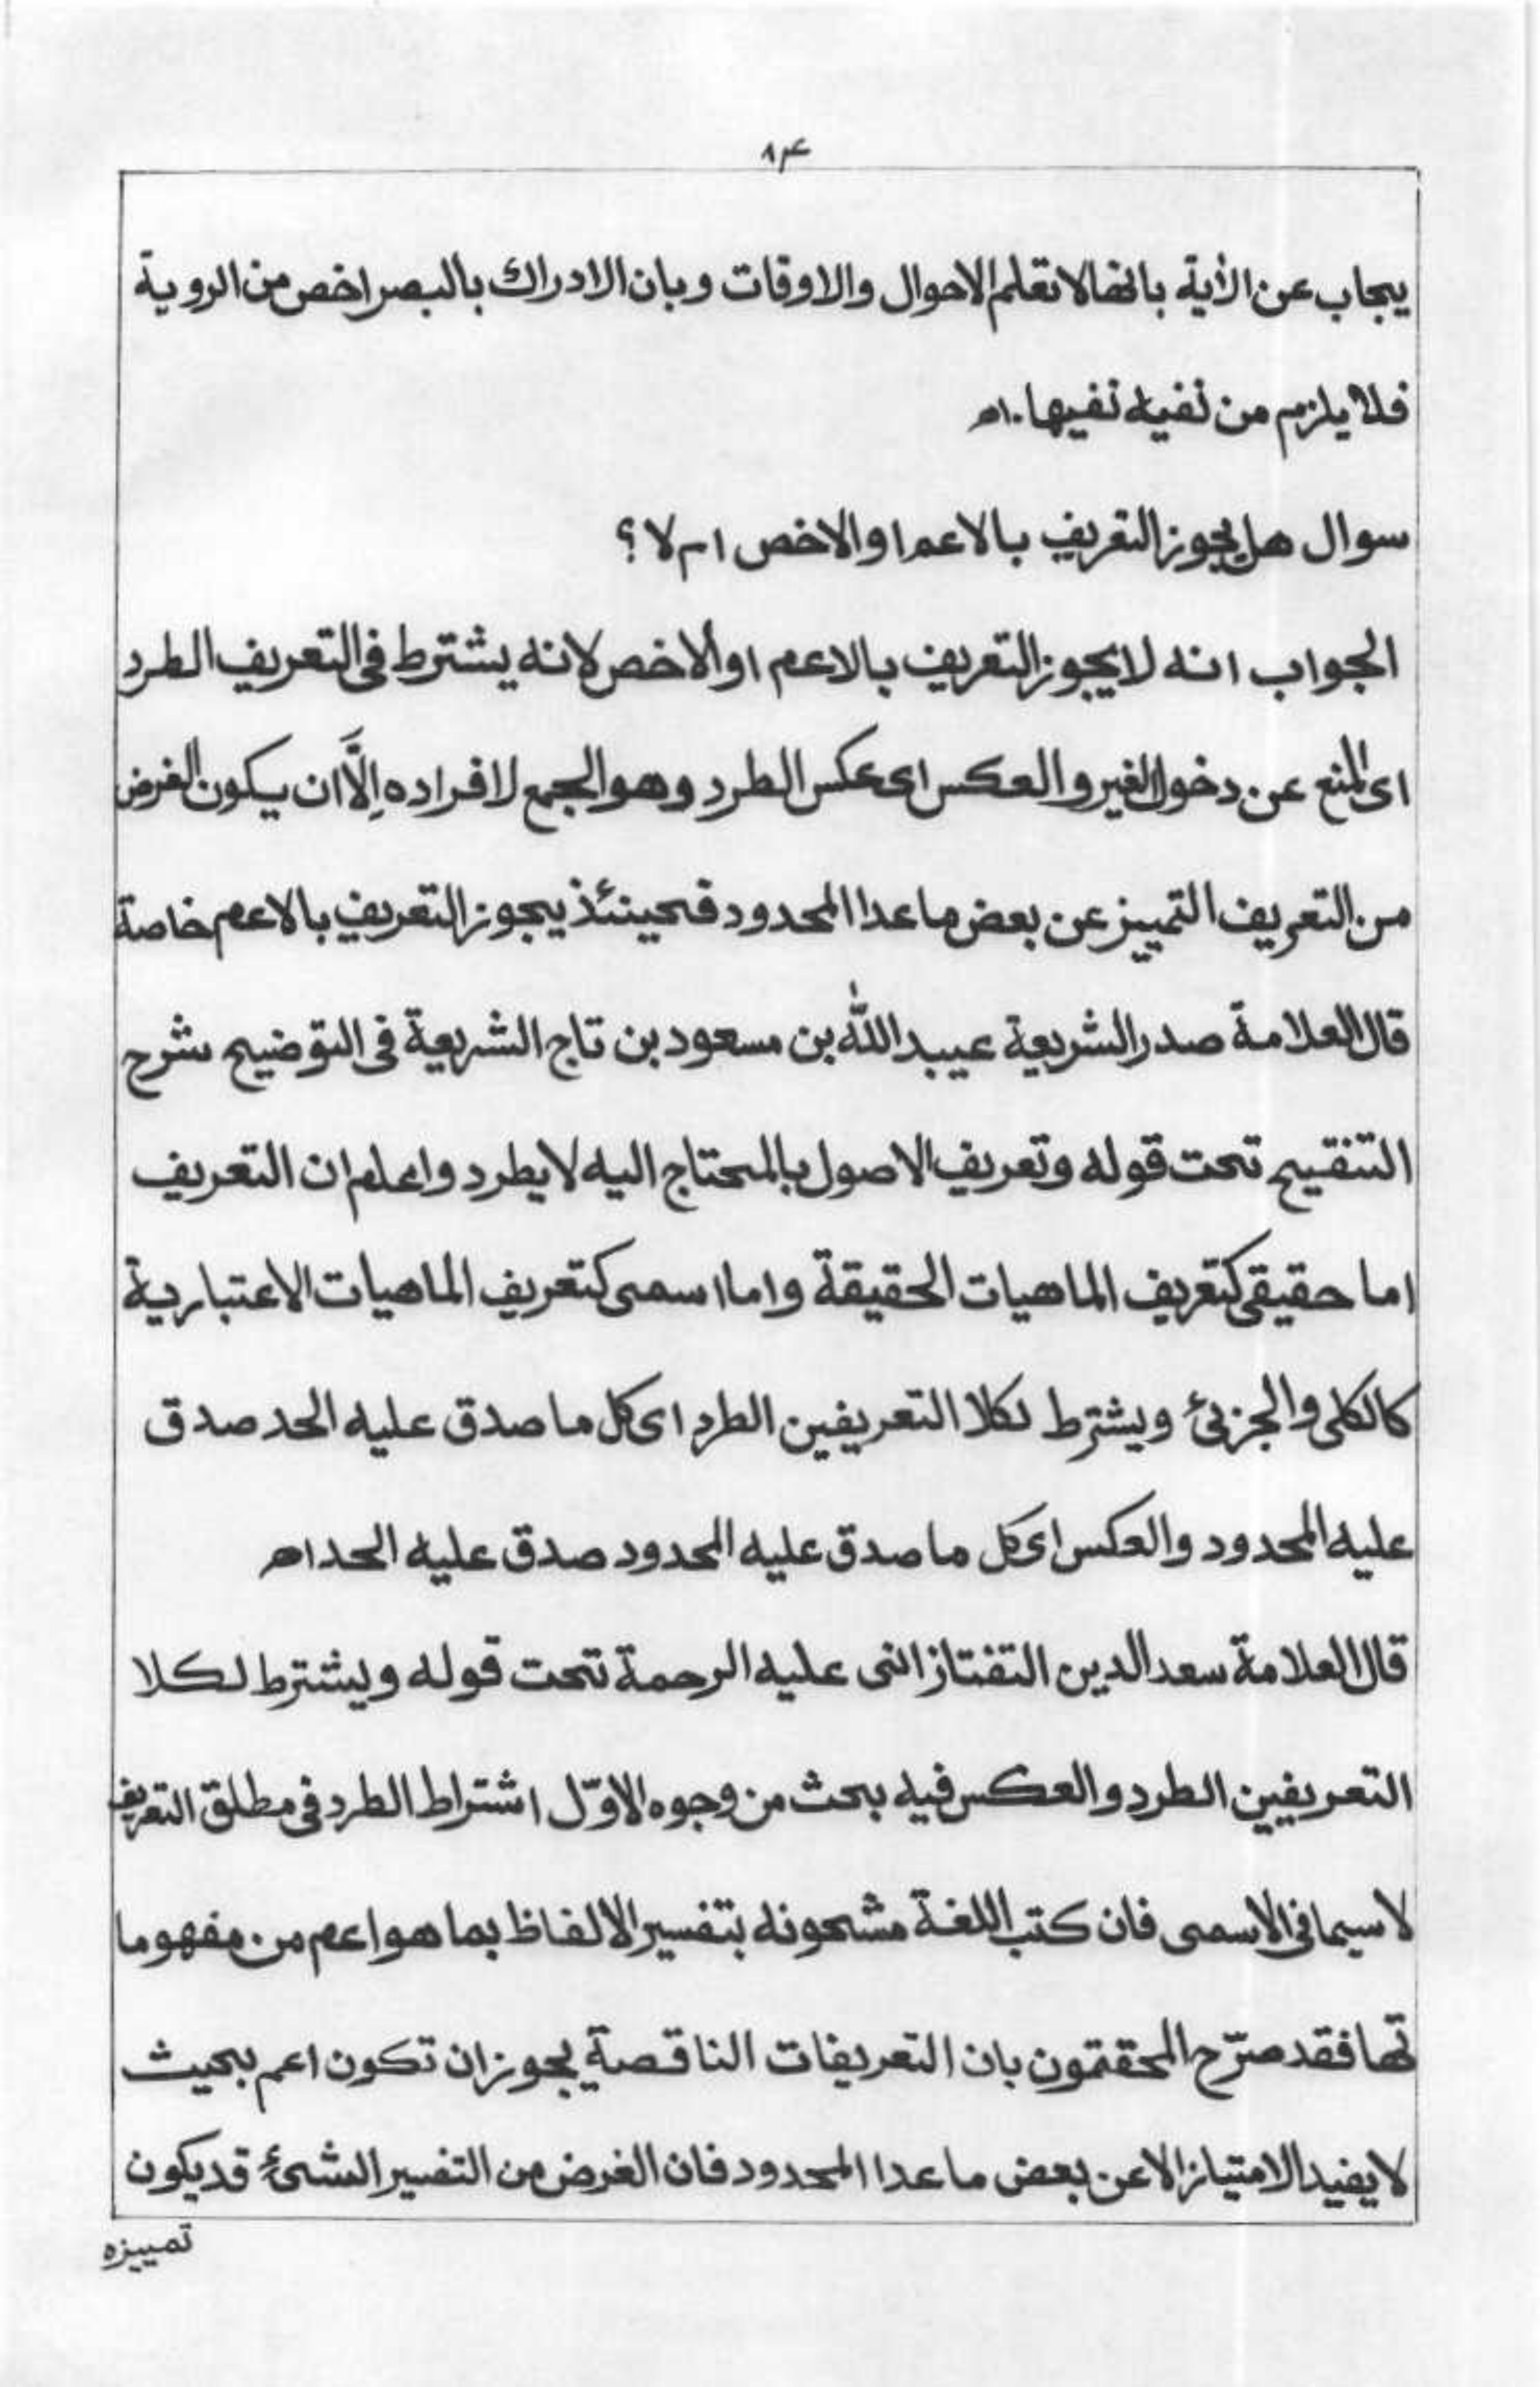 ۸۴
يجاب عن الأية بانها لا تعلم الاحوال والاوقات وبان الادراك بالبصر اخص من الروية
فلا يلزم من نفيه نفيها.اھ
سوال هل يجوز التعريف بالاعم او الاخص ام لا ؟
الجواب انه لا يجوز التعريف بالاعم او الاخص لانه يشترط فى التعريف الطرد
اى المنع عن دخول الغير والعكس اى عكس الطرد وهو الجمع لافراده اِلَّا ان يكون الغرض
من التعريف التمييز عن بعض ما عدا المحدود فحينئذ يجوز التعريف بالاعم خاصة
قال العلامة صدر الشريعة عبيد الله بن مسعود بن تاج الشريعة فى التوضيح شرح
التنقيح تحت قوله وتعريف الاصول بالمحتاج اليه لا يطرد واعلم ان التعريف
اما حقيقى كتعريف الماهيات الحقيقة واما اسمى كتعريف الماهيات الاعتبارية
كالكلى والجزئ ويشترط لكلا التعريفين الطرد اى كل ما صدق عليه الحد صدق
عليه المحدود والعكس اى كل ما صدق عليه المحدود صدق عليه الحد اھ
قال العلامة سعد الدين التفتازانى عليه الرحمة تحت قوله ويشترط لكلا
التعريفين الطرد والعكس فيه بحث من وجوه الاوّل اشتراط الطرد فى مطلق التعريف
لا سيما فى الاسمى فان كتب اللغة مشحونه بتفسير الالفاظ بما هو اعم من مفهوما
تها فقد صرّح المحققون بان التعريفات الناقصة يجوز ان تكون اعم بحيث
لا يفيد الامتياز الا عن بعض ما عدا المحدود فان الغرض من التفسير الشئ قد يكون
تمييزه